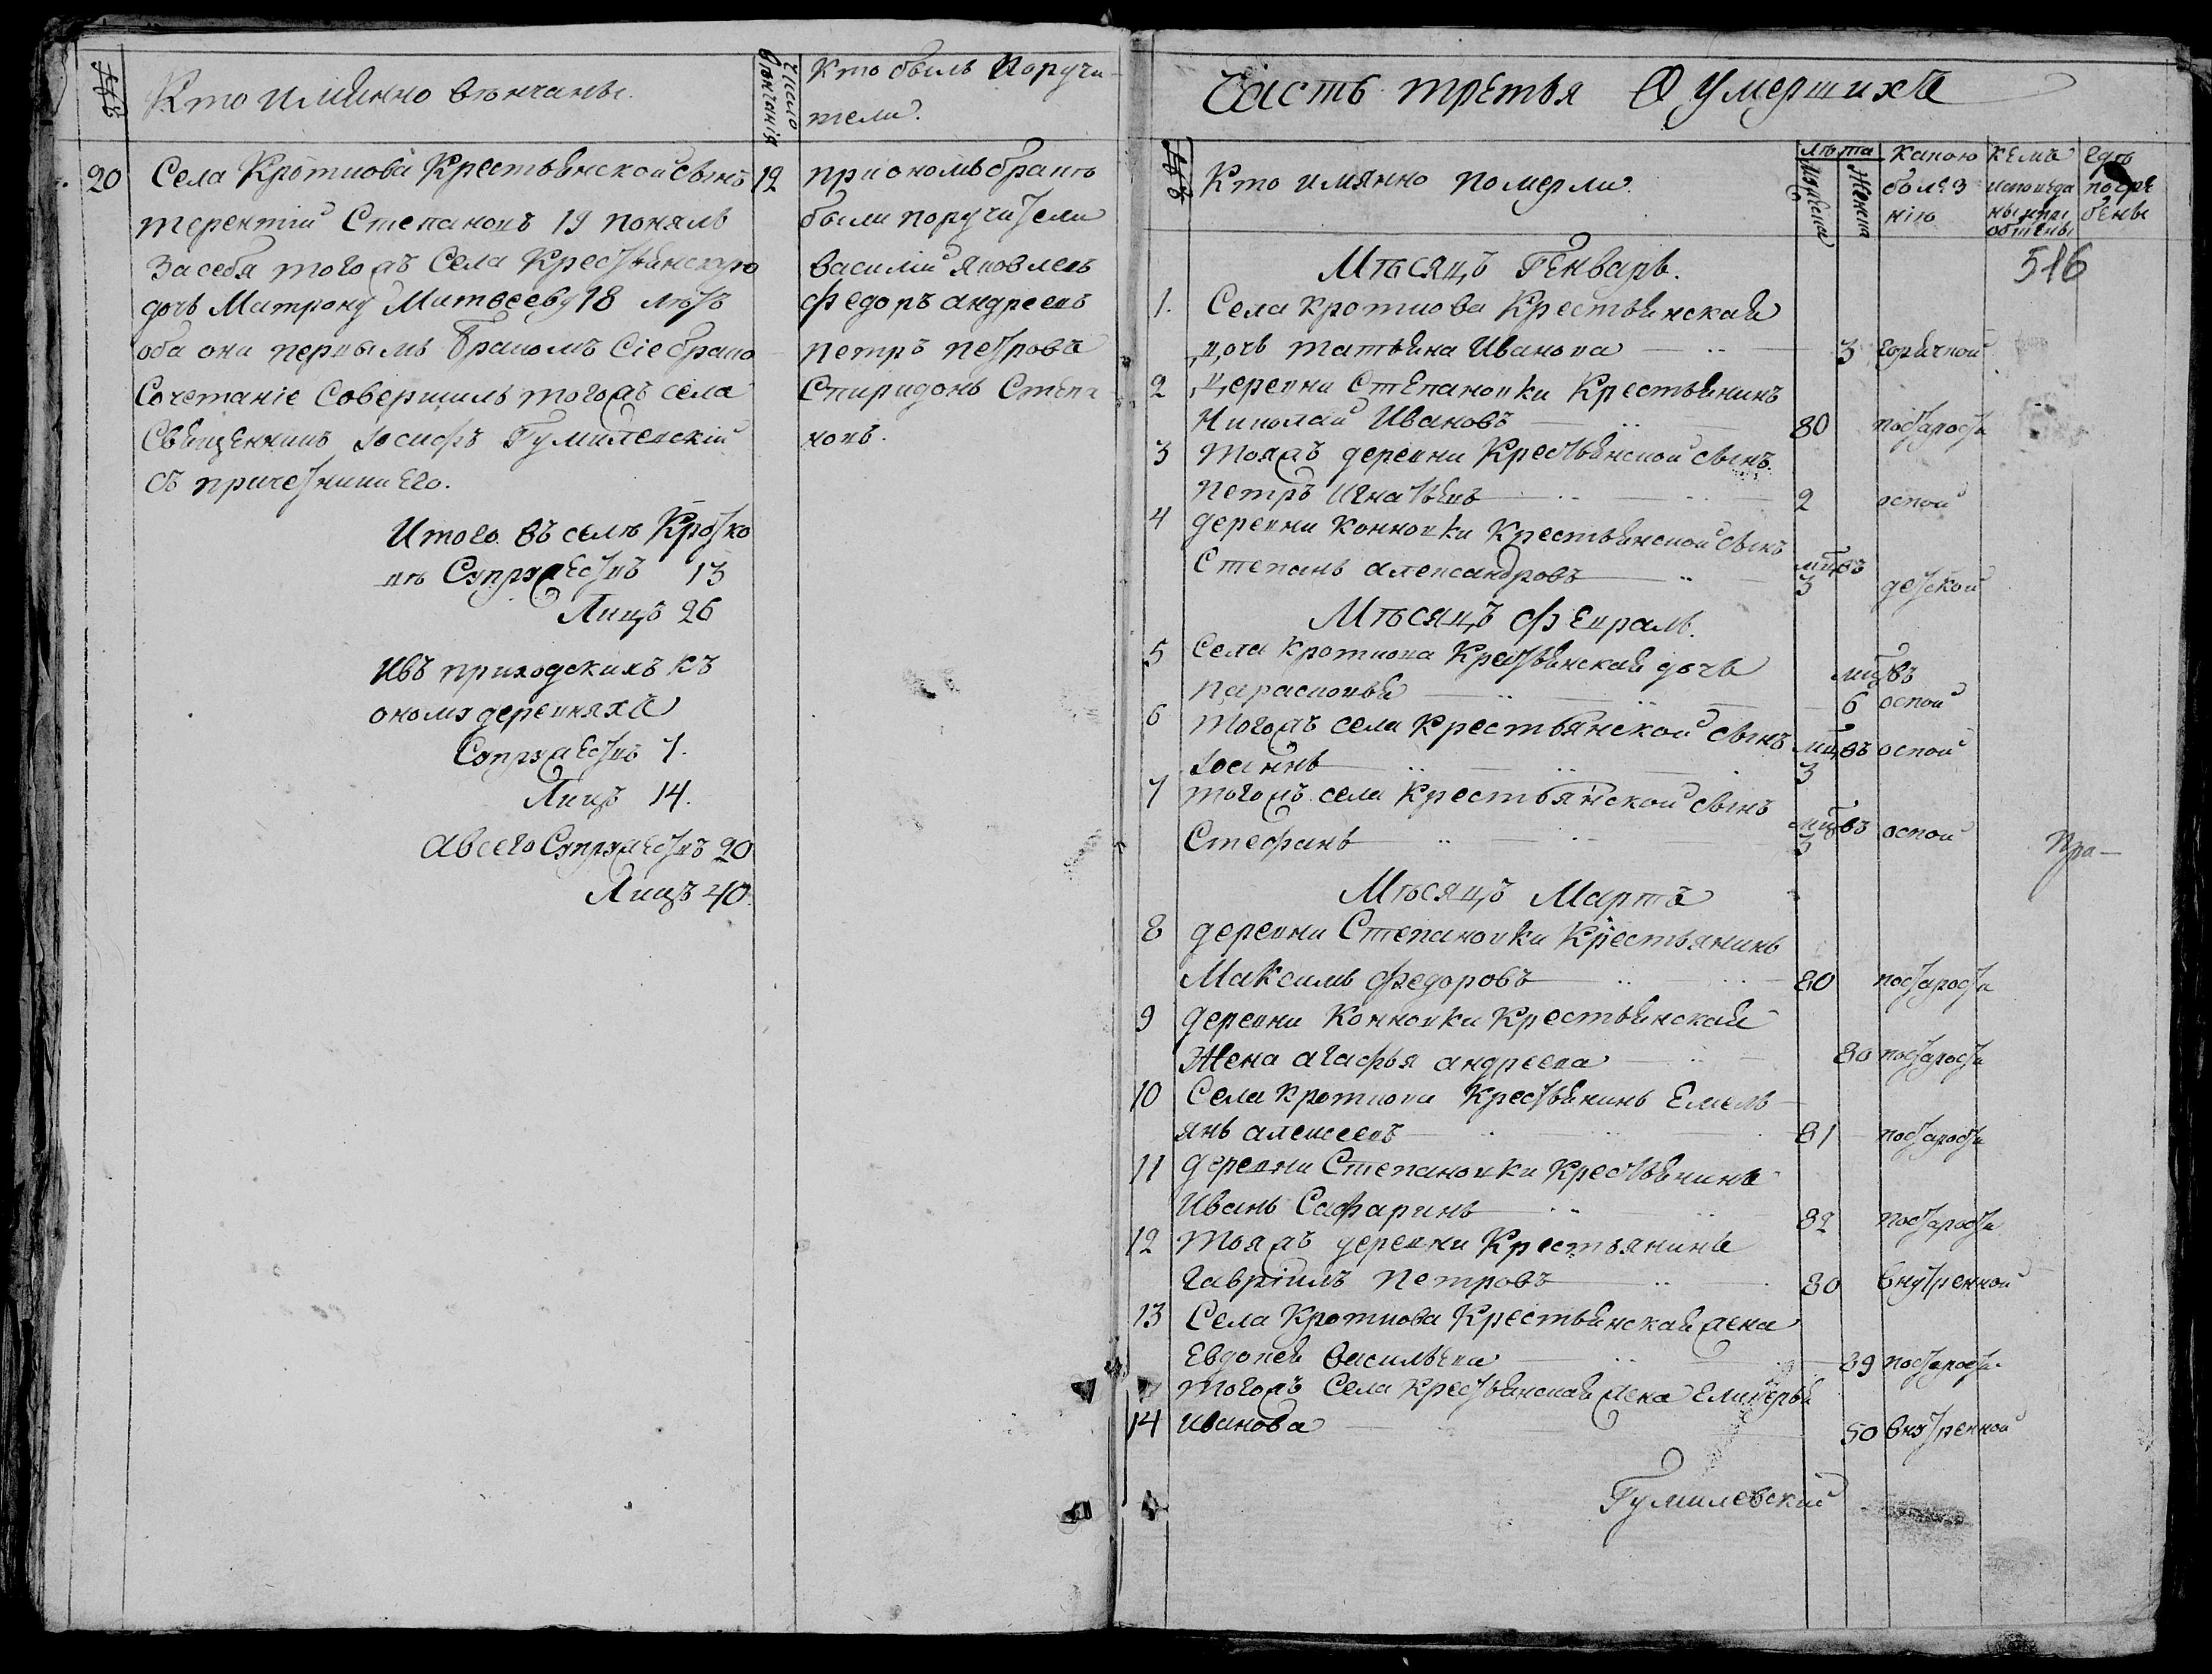 №№
Кто имянно венчаны.
Число венчанія
Кто былъ поручи-
тели.
20 Села Кроткова Крестьянской сынъ 12
терентій Степановъ 19 понялъ
за себя тогожъ Села Крестьянскую
дочь Матрону Матвееву 18 летъ
оба они первымъ бракомъ Сіе брако
Сочетаніе Совершилъ тогожъ села
Священникъ Іосифъ Гумилевскій
съ причетники Его.
при ономъ браке
были поручители
василій яковлевъ
федоръ андреевъ
петръ петровъ
Спиридонъ Степа
новъ.
Итого въ селе Кротко
ве Супружествъ 13
Лицъ 26
Ивъ приходскихъ къ
оному деревняхъ
Супружествъ 7.
Лицъ 14.
Авсего Супружествъ 20
Лицъ 40.
Часть третья О умершихъ
№№
Кто имянно померли.
лѣта
Мужеска
Женска
Какою
болѣз
нію
Кемъ
исповеда
ны и прі
общены
Где
погре
бены
516
Мѣсяцъ Генварь.
1. Села кроткова Крестьянская
дочь татьяна Иванова 3 горячкой
2 Деревни Степановки Крестьянинъ
Николай Ивановъ 80 постарости
3 тояжъ деревни Крестьянской сынъ
петръ Игнатьевъ 2 оспой
4 деревни конновки Крестьянской сынъ
Степанъ александровъ мцовъ 3 детской
Мѣсяцъ февраль.
5 Села кроткова Крестьянская дочь
парасковья мцовъ 6 оспой
6 тогожъ села Крестьянской сынъ
Іоаннъ мцовъ 3 оспой
7 тогожъ села Крестьянской сынъ
Стефанъ мцовъ 3 оспой
Пра-
Мѣсяцъ Мартъ
8 деревни Степановки Крестьянинъ
Максимъ федоровъ 80 постарости
9 деревни Конновки Крестьянская
Жена агафья андреева 80 постарости
10 Села кроткова Крестьянинъ Емель-
янъ алексеевъ 81 постарости
11 деревни Степановки Крестьянинъ
Иванъ Сафаринъ 82 постарости
12 тояжъ деревни Крестьянинъ
гавріилъ петровъ 80 внутренной
13 Села Кроткова Крестьянская жена
Евдокея васильева 89 постарости
тогожъ Села крестьянская жена Гликерья
14 иванова 50 внутренной
Гумилевский